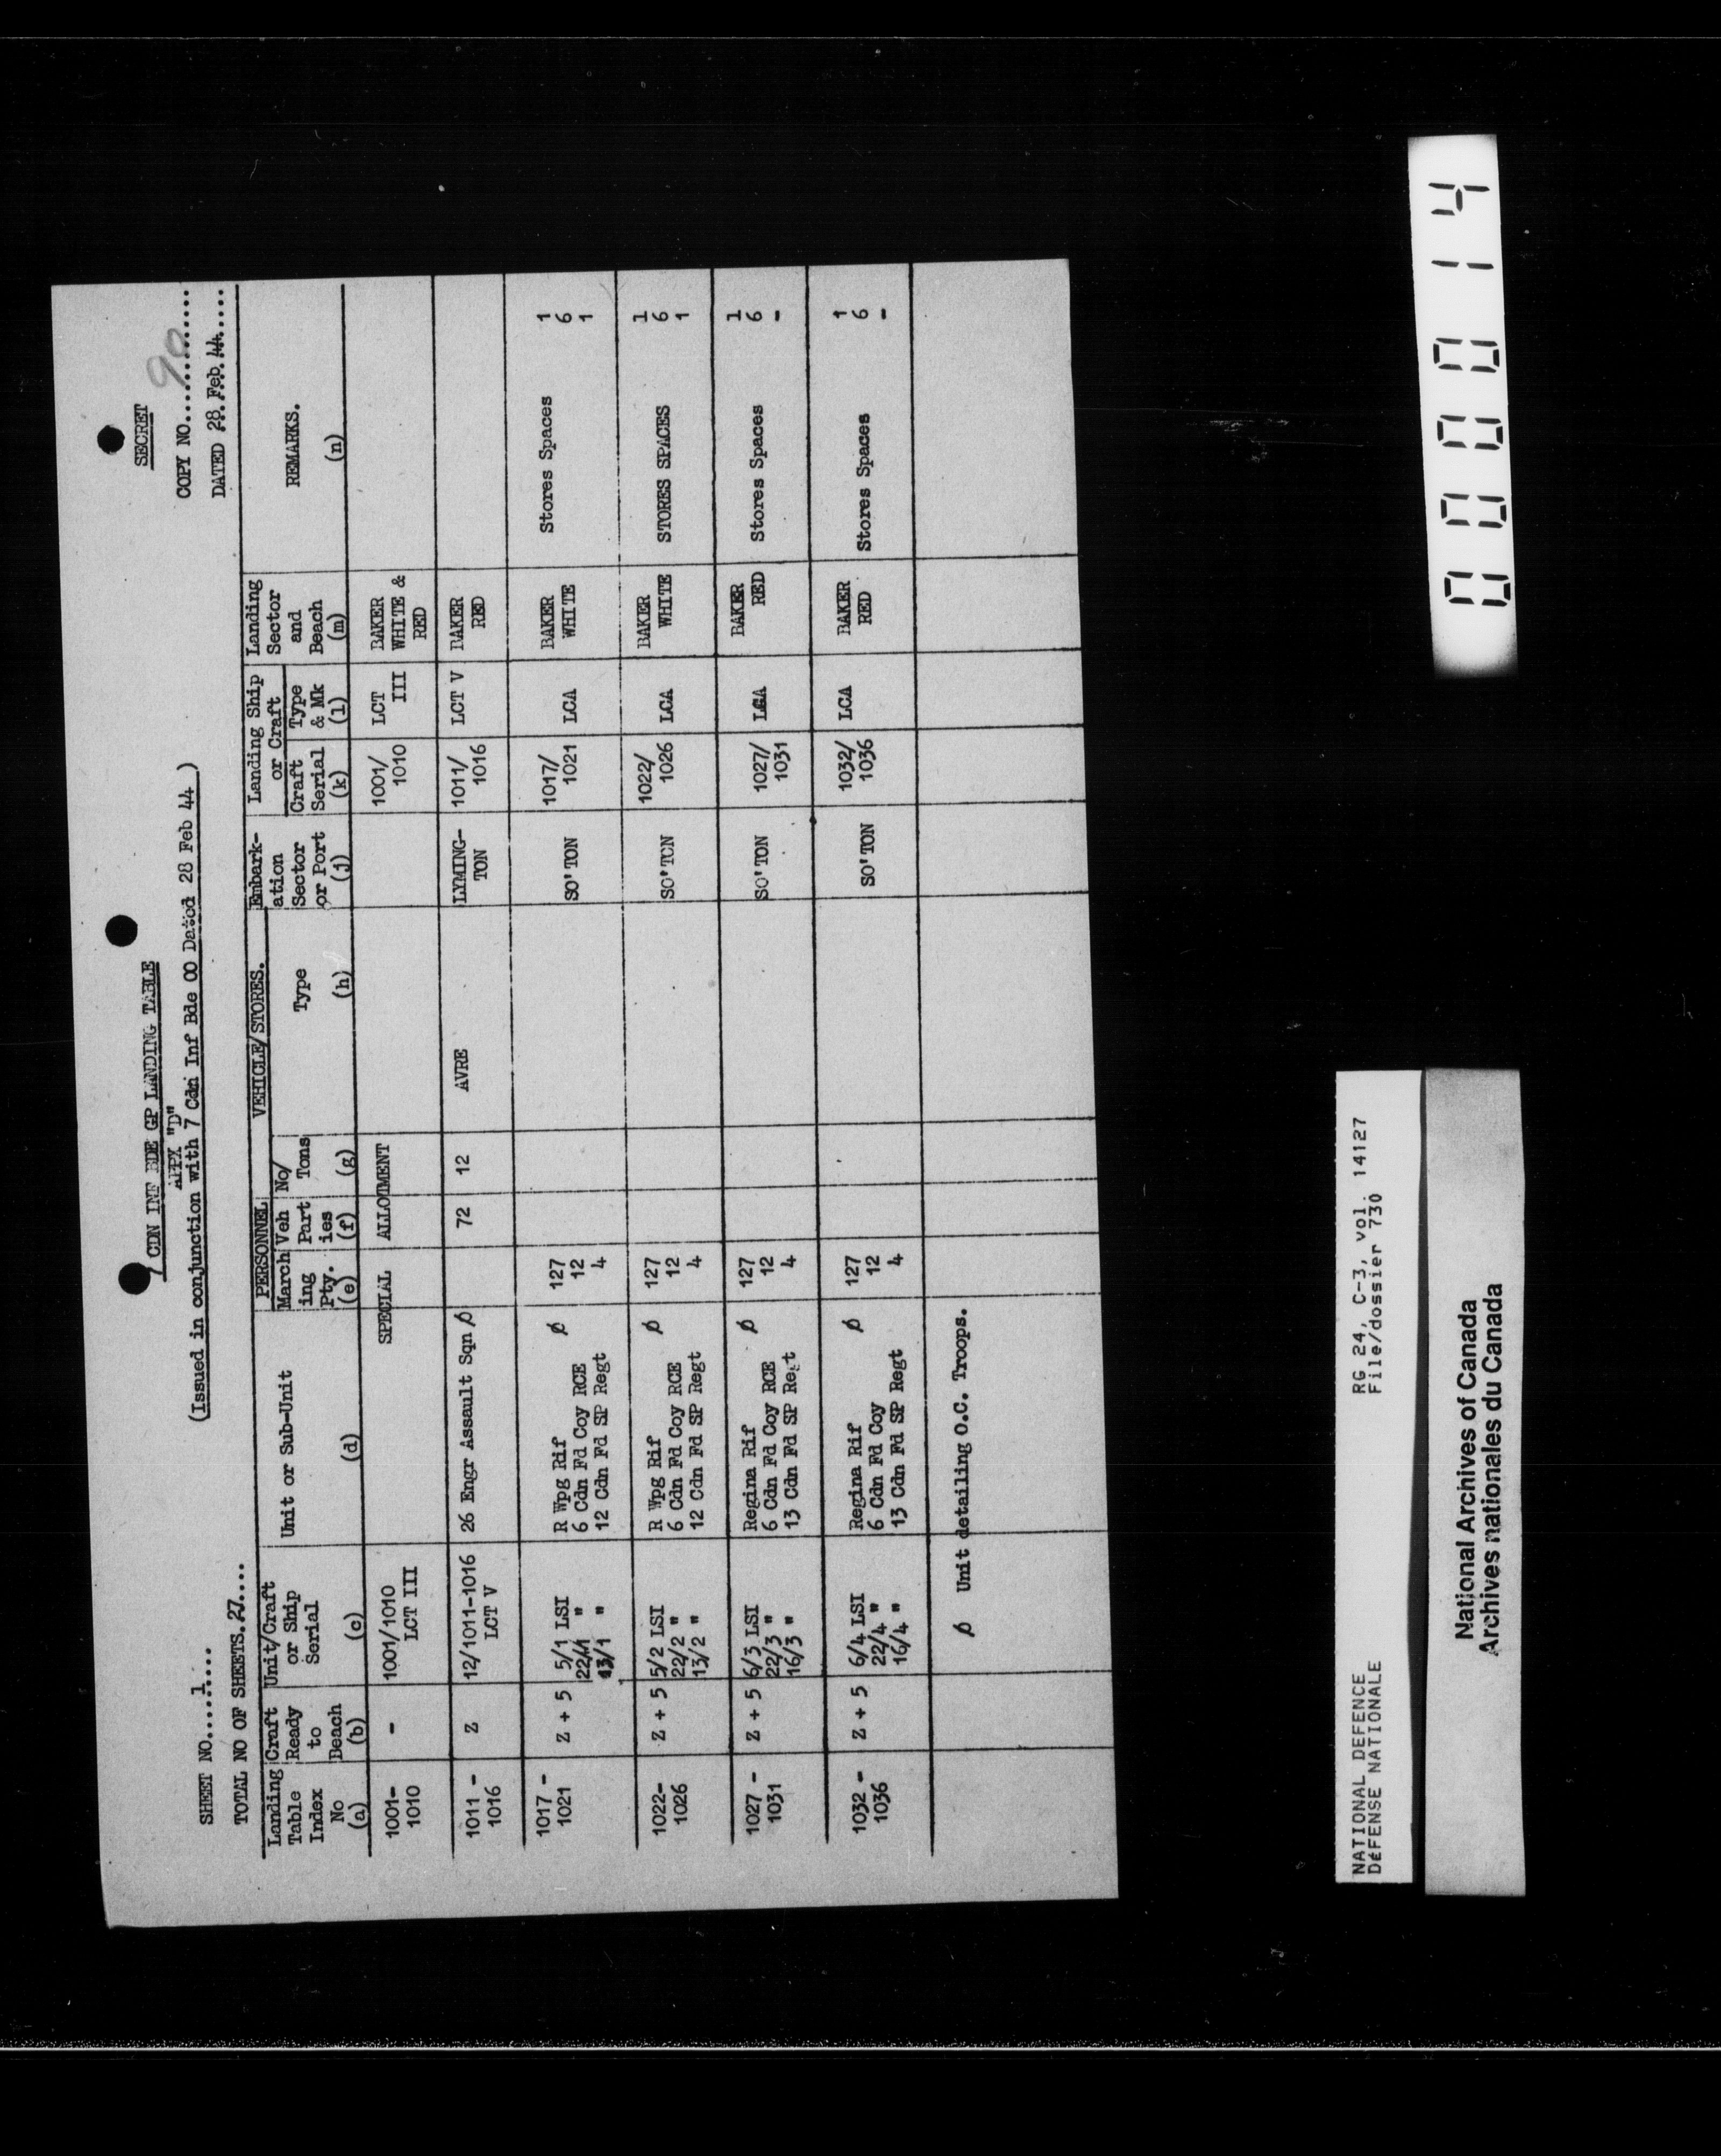 SECRET
COPY NO. 90
DATED 28 Feb 44
7 CDN INF BDE GP LANDING TABLE
APPX "D"
(Issued in conjunction with 7 Cdn Inf Bde OO Dated 28 Feb 44 )
SHEET NO.....1.....
TOTAL NO OF SHEETS.27....
Landing Table Index No (a) | Craft Ready to Beach (b) | Unit/Craft or Ship Serial (c) | Unit or Sub-Unit (d) | PERSONNEL March ing Pty. (e) | Veh Part ies (f) | VEHICLE/STORES. No/ Tons (g) | Type (h) | Embark- ation Sector or Port (j) | Landing Ship or Craft Craft Serial (k) | Type & Mk (l) | Landing Sector and Beach (m) | REMARKS. (n)
1001- 1010 | - | 1001/1010 LCT III | SPECIAL ALLOTMENT | 1001/ 1010 | LCT III | BAKER WHITE & RED
1011 - 1016 | Z | 12/1011-1016 LCT V | 26 Engr Assault Sqn ø | 72 | 12 | AVRE | LYMING- TON | 1011/ 1016 | LCT V | BAKER RED
1017 - 1021 | Z + 5 | 5/1 LSI | R Wpg Rif ø | 127 | SO'TON | 1017/ 1021 | LCA | BAKER WHITE | Stores Spaces 1
22/1 " | 6 Cdn Fd Coy RCE | 12 | 6
13/1 " | 12 Cdn Fd SP Regt | 4 | 1
1022- 1026 | Z + 5 | 5/2 LSI | R Wpg Rif ø | 127 | SO'TON | 1022/ 1026 | LCA | BAKER WHITE | STORES SPACES 1
22/2 " | 6 Cdn Fd Coy RCE | 12 | 6
13/2 " | 12 Cdn Fd SP Regt | 4 | 1
1027 - 1031 | Z + 5 | 6/3 LSI | Regina Rif ø | 127 | SO'TON | 1027/ 1031 | LCA | BAKER RED | Stores Spaces 1
22/3 " | 6 Cdn Fd Coy RCE | 12 | 6
16/3 " | 13 Cdn Fd SP Regt | 4 | -
1032 - 1036 | Z + 5 | 6/4 LSI | Regina Rif ø | 127 | SO'TON | 1032/ 1036 | LCA | BAKER RED | Stores Spaces 1
22/4 " | 6 Cdn Fd Coy | 12 | 6
16/4 " | 13 Cdn Fd SP Regt | 4 | -
ø Unit detailing O.C. Troops.
NATIONAL DEFENCE RG 24, C-3, vol. 14127
DÉFENSE NATIONALE File/dossier 730
National Archives of Canada
Archives nationales du Canada
000014